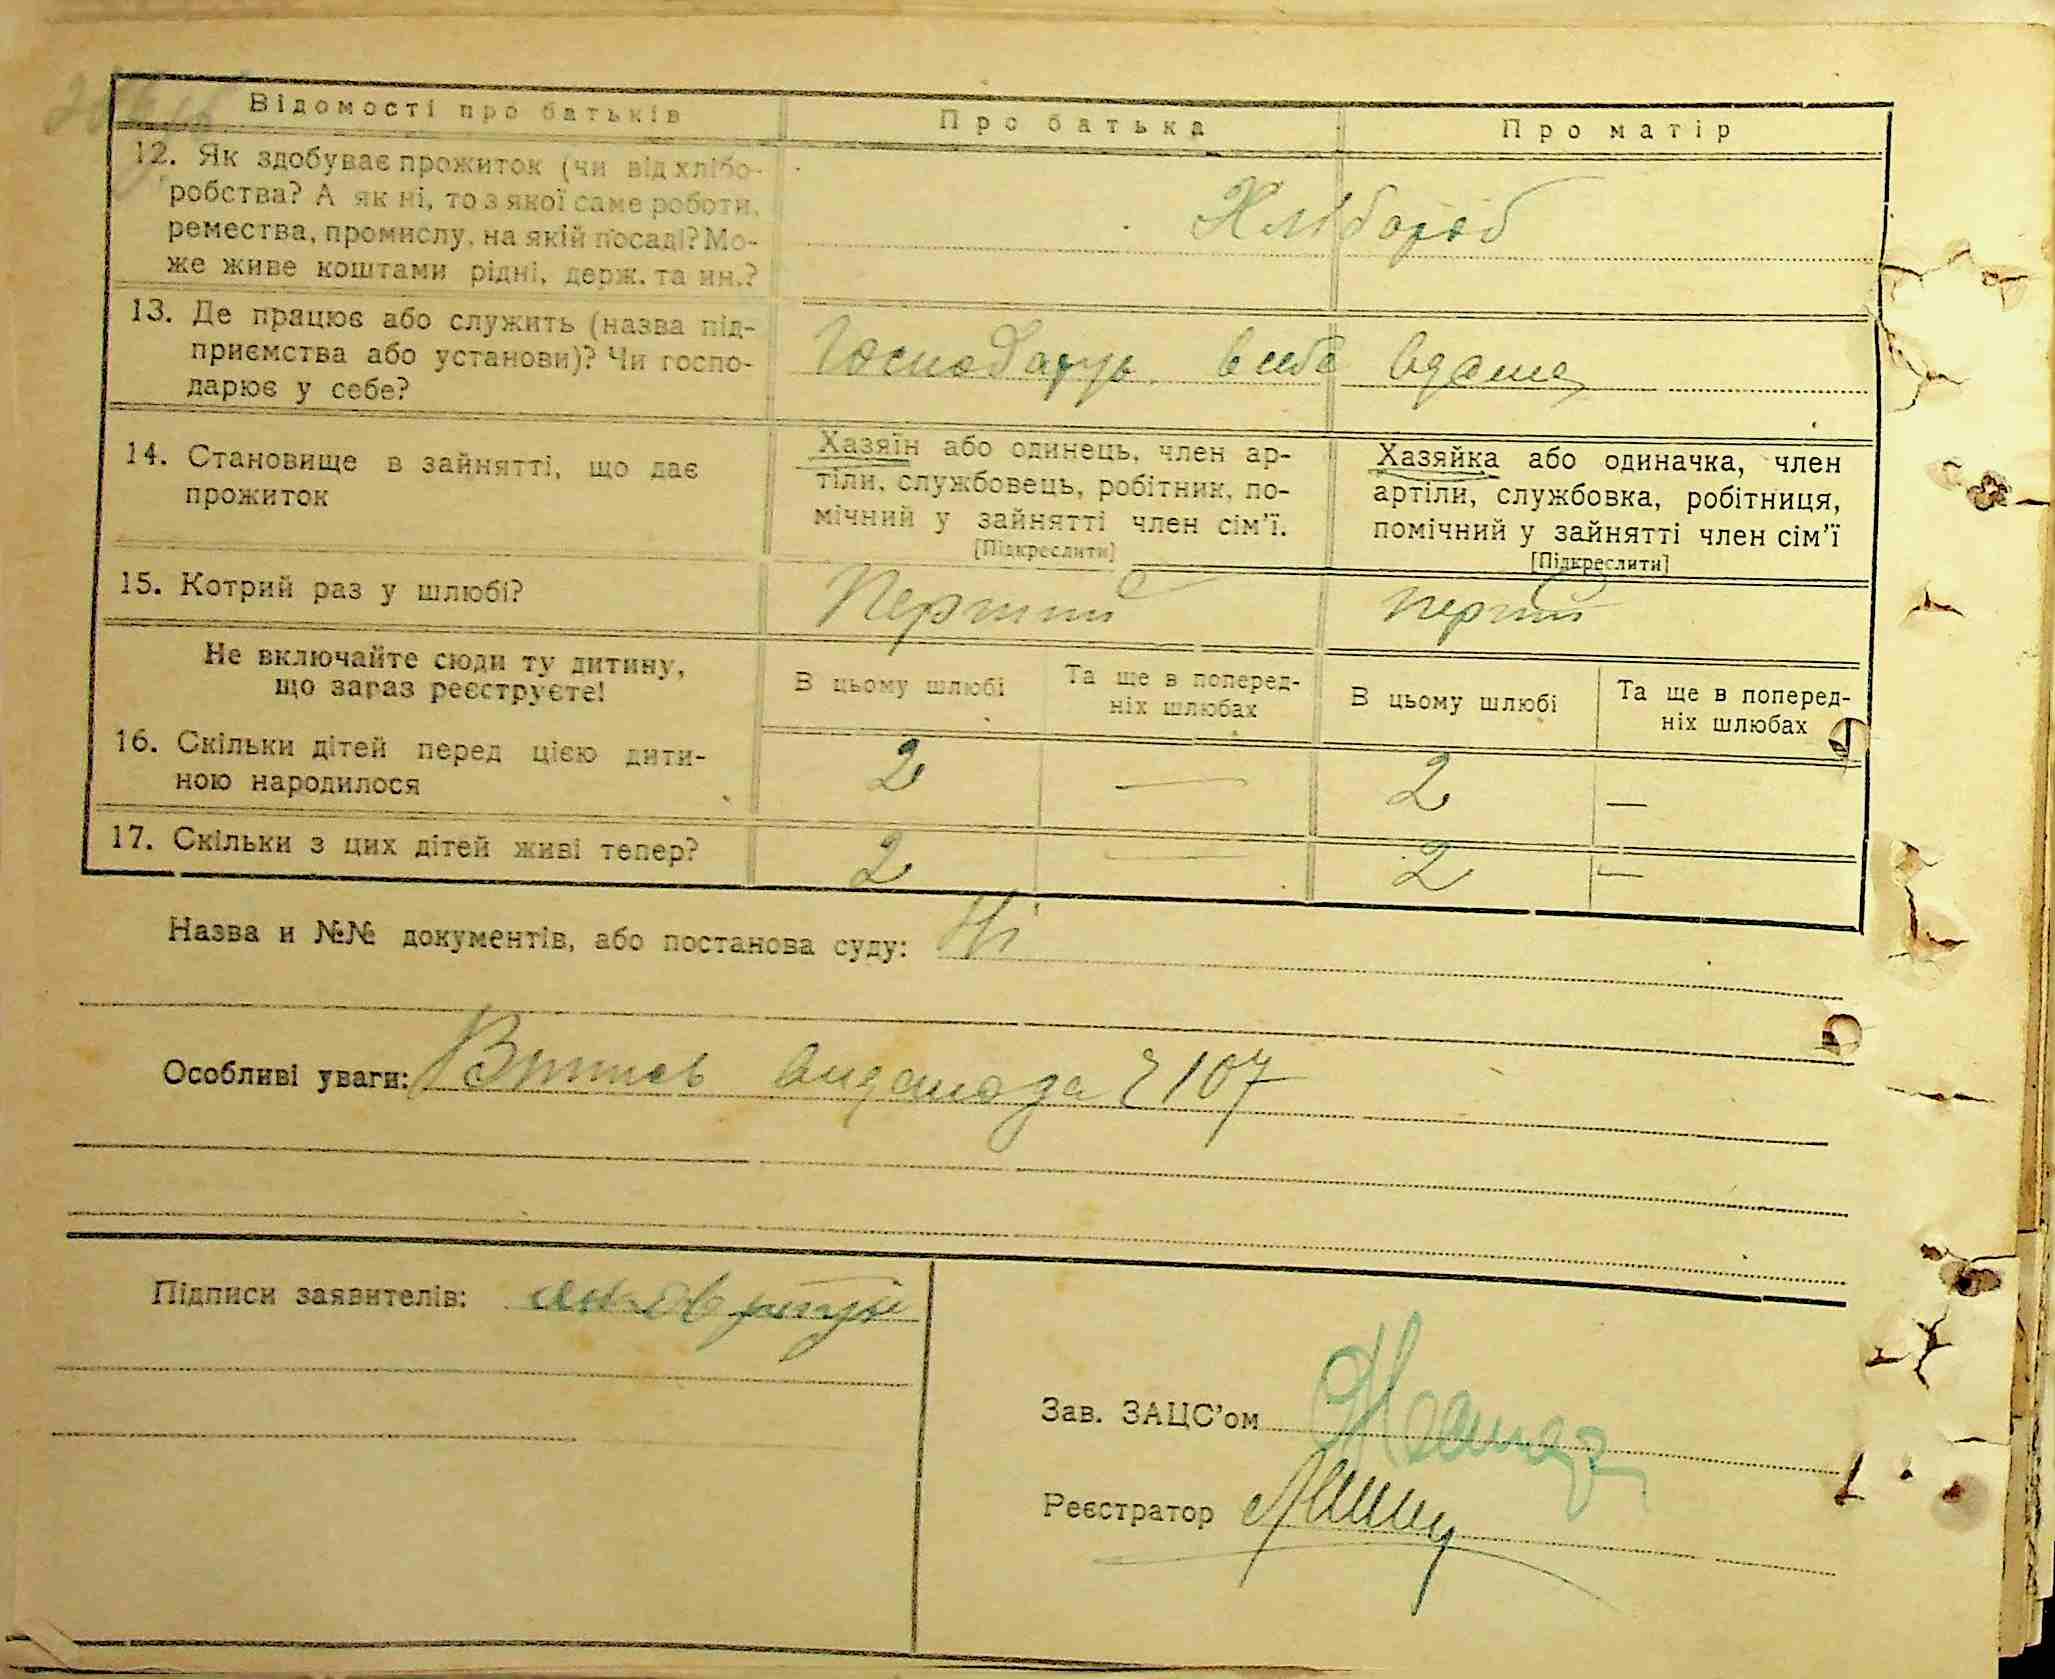 Відомості про батьків Про батька Про матір
12. Як здобуває прожиток (чи від хлібо-
робства? А як ні, то з якої саме роботи,
ремества, промислу, на якій посаді? Мо-
же живе коштами рідні, держ. та ин.?
Хлібороб
13. Де працює або служить (назва під-
приємства або установи)? Чи госпо-
дарює у себе?
Господарує в себе вдома
14. Становище в зайнятті, що дає
прожиток
Хазяїн або одинець, член ар-
тіли, службовець, робітник, по-
мічний у зайнятті член сім'ї.
[Підкреслити]
Хазяйка або одиначка, член
артіли, службовка, робітниця,
помічний у зайнятті член сім'ї
[Підкреслити]
15. Котрий раз у шлюбі? Перший перший
Не включайте сюди ту дитину,
що зараз реєструєте!
В цьому шлюбі
Та ще в поперед-
ніх шлюбах
В цьому шлюбі
Та ще в поперед-
ніх шлюбах
16. Скільки дітей перед цією дити-
ною народилося
2 — 2 —
17. Скільки з цих дітей живі тепер? 2 — 2 —
Назва и №№ документів, або постанова суду: Ні
Особливі уваги: Витись видано за 107
Підписи заявителів:
Зав. ЗАЦС'ом
Реєстратор